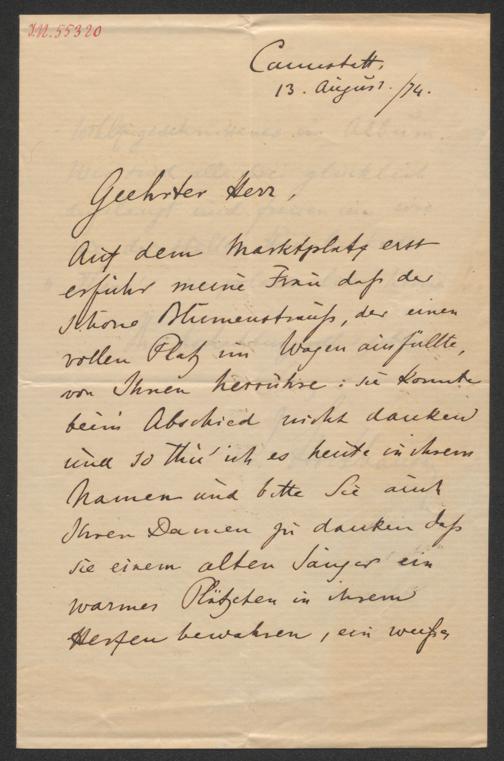 J.N. 55320
Cannstatt,
13. August./74.
Geehrter Herr,
Auf dem Marktplatz erst
erfuhr meine Frau daß der
schöne Blumenstrauß, der einen
vollen Platz im Wagen ausfüllte,
von Ihnen herrühre: sie konnte
beim Abschied nicht danken
und so thu' ich es heute in ihrem
Namen und bitte Sie auch
Ihren Damen zu danken daß
sie einem alten Sänger ein
warmes Plätzchen in ihrem
Herzen bewahren, ein weißes